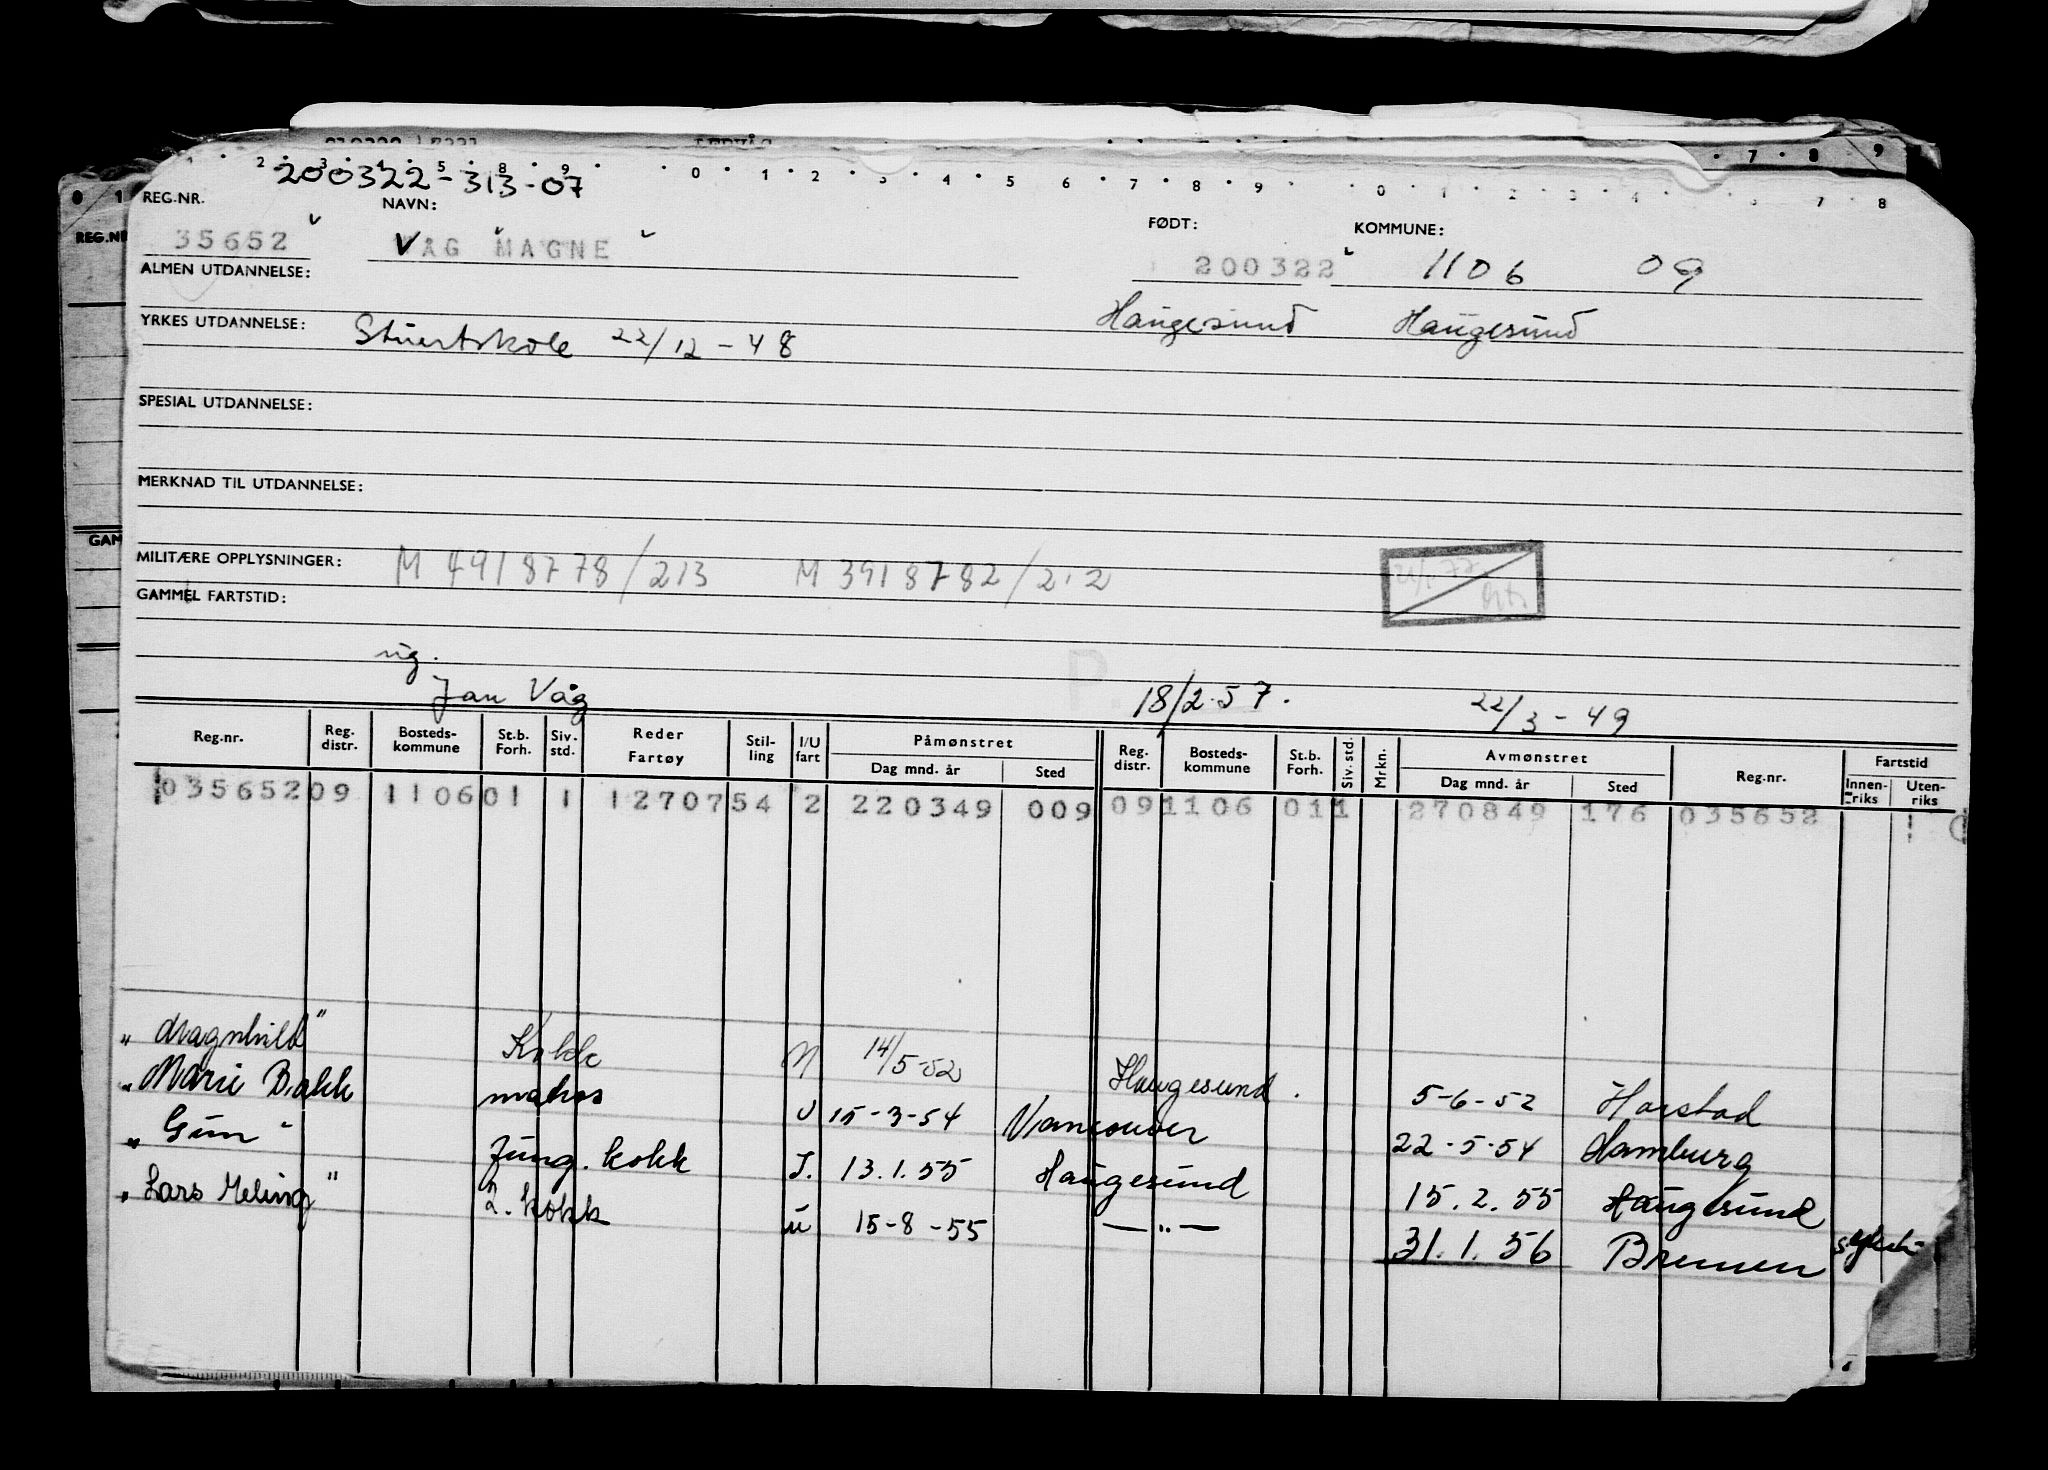 200322-313-07
REG.NR. NAVN: FØDT: KOMMUNE:
35652 VÅG MAGNE 200322 1106 09
ALMEN UTDANNELSE:
Haugesund Haugesund
YRKES UTDANNELSE: Stuertskole 22/12-48
SPESIAL UTDANNELSE:
MERKNAD TIL UTDANNELSE:
MILITÆRE OPPLYSNINGER: M 4918778/213 M 3918782/212
GAMMEL FARTSTID:
Jan Våg 18/2.57. 22/3-49
Reg.nr. Reg. distr. Bosteds-kommune St.b. Forh. Siv. std. Reder Fartøy Stil-ling I/U fart Påmønstret Dag mnd. år Sted Reg. distr. Bosteds-kommune St.b. Forh. Siv. std. Mrkn. Avmønstret Dag mnd. år Sted Reg.nr. Fartstid Innen-riks Uten-riks
035652 09 1106 01 1 1270754 2 220349 009 09 1106 01 1 270849 176 035652
"Magnhild" Kokk N 14/5-52 Haugesund. 5-6-52 Harstad
"Marie Bakk matros U 15-3-54 Vancouver 22-5-54 Hamburg
"Gun" Jung. kokk I. 13.1.55 Haugesund 15.2.55 Haugesund
"Lars Meling" 2. kokk u 15-8-55 —"— 31.1.56 Bremen